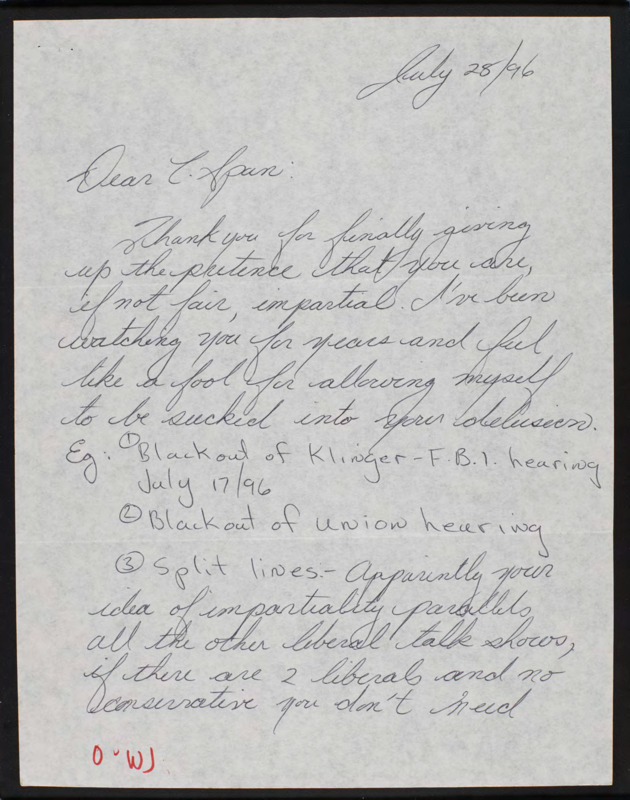 July 28/96
Dear C. Span:
Thank you for finally giving
up the pretence that you are,
if not fair, impartial. I've been
watching you for years and feel
like a fool for allowing myself
to be sucked into your delusion.
Eg: ① Blackout of Klinger - F.B.I. hearing
July 17/96
② Blackout of union hearing
③ Split lines. - Apparently your
idea of impartiality parallels
all the other liberal talk shows,
if there are 2 liberals and no
conservative you don't need
O-WJ